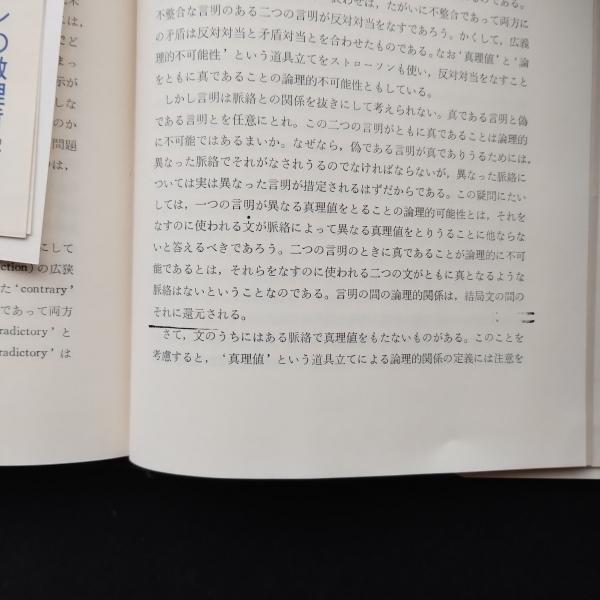 ものである。
不整合な言明のある二つの言明が反対対当をなすであろう。かくして，広義
の矛盾は反対対当と矛盾対当とを合わせたものである。なお‘真理値’と‘論
理的不可能性’という道具立てをストローソンも使い，反対対当をなすこと
をともに真であることの論理的不可能性ともしている。
しかし言明は脈絡との関係を抜きにして考えられない。真である言明と偽
である言明とを任意にとれ。この二つの言明がともに真であることは論理的
に不可能ではあるまいか。なぜなら，偽である言明が真でありうるためには，
異なった脈絡でそれがなされうるのでなければならないが，異なった脈絡に
ついては実は異なった言明が措定されるはずだからである。この疑問にたい
しては，一つの言明が異なる真理値をとることの論理的可能性とは，それを
なすのに使われる文が脈絡によって異なる真理値をとりうることに他ならな
いと答えるべきであろう。二つの言明のときに真であることが論理的に不可
能であるとは，それらをなすのに使われる二つの文がともに真となるような
脈絡はないということなのである。言明の間の論理的関係は，結局文の間の
それに還元される。
さて，文のうちにはある脈絡で真理値をもたないものがある。このことを
考慮すると，‘真理値’という道具立てによる論理的関係の定義には注意を
は，
でど
まっ
示が
しな
のか
問題
は，
にして
ction）の広狭
た‘contrary’
であって両方
radictory’と
radictory’は